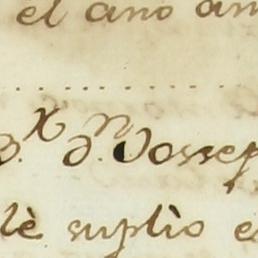 el año an
B.^x d.^n Josep
lè suplìo e